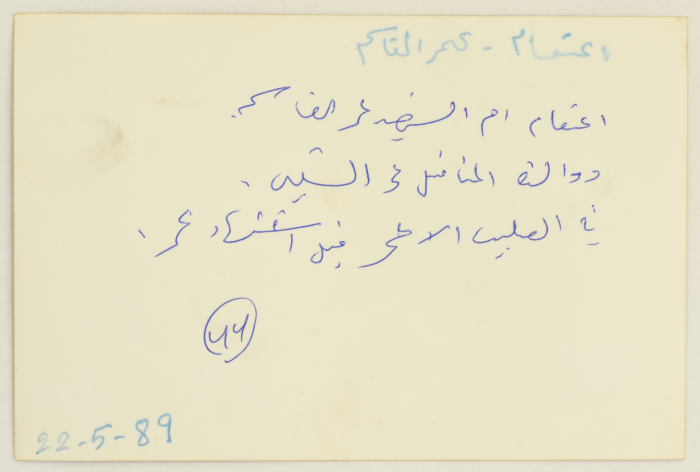 اعتصام - عمر القاسم
اعتصام ام الشهيد عمر القاسم
ووالدة المناضل عمر الشلبي.
في الصليب الاحمر قبل استشهاد عمر.
44
22-5-89